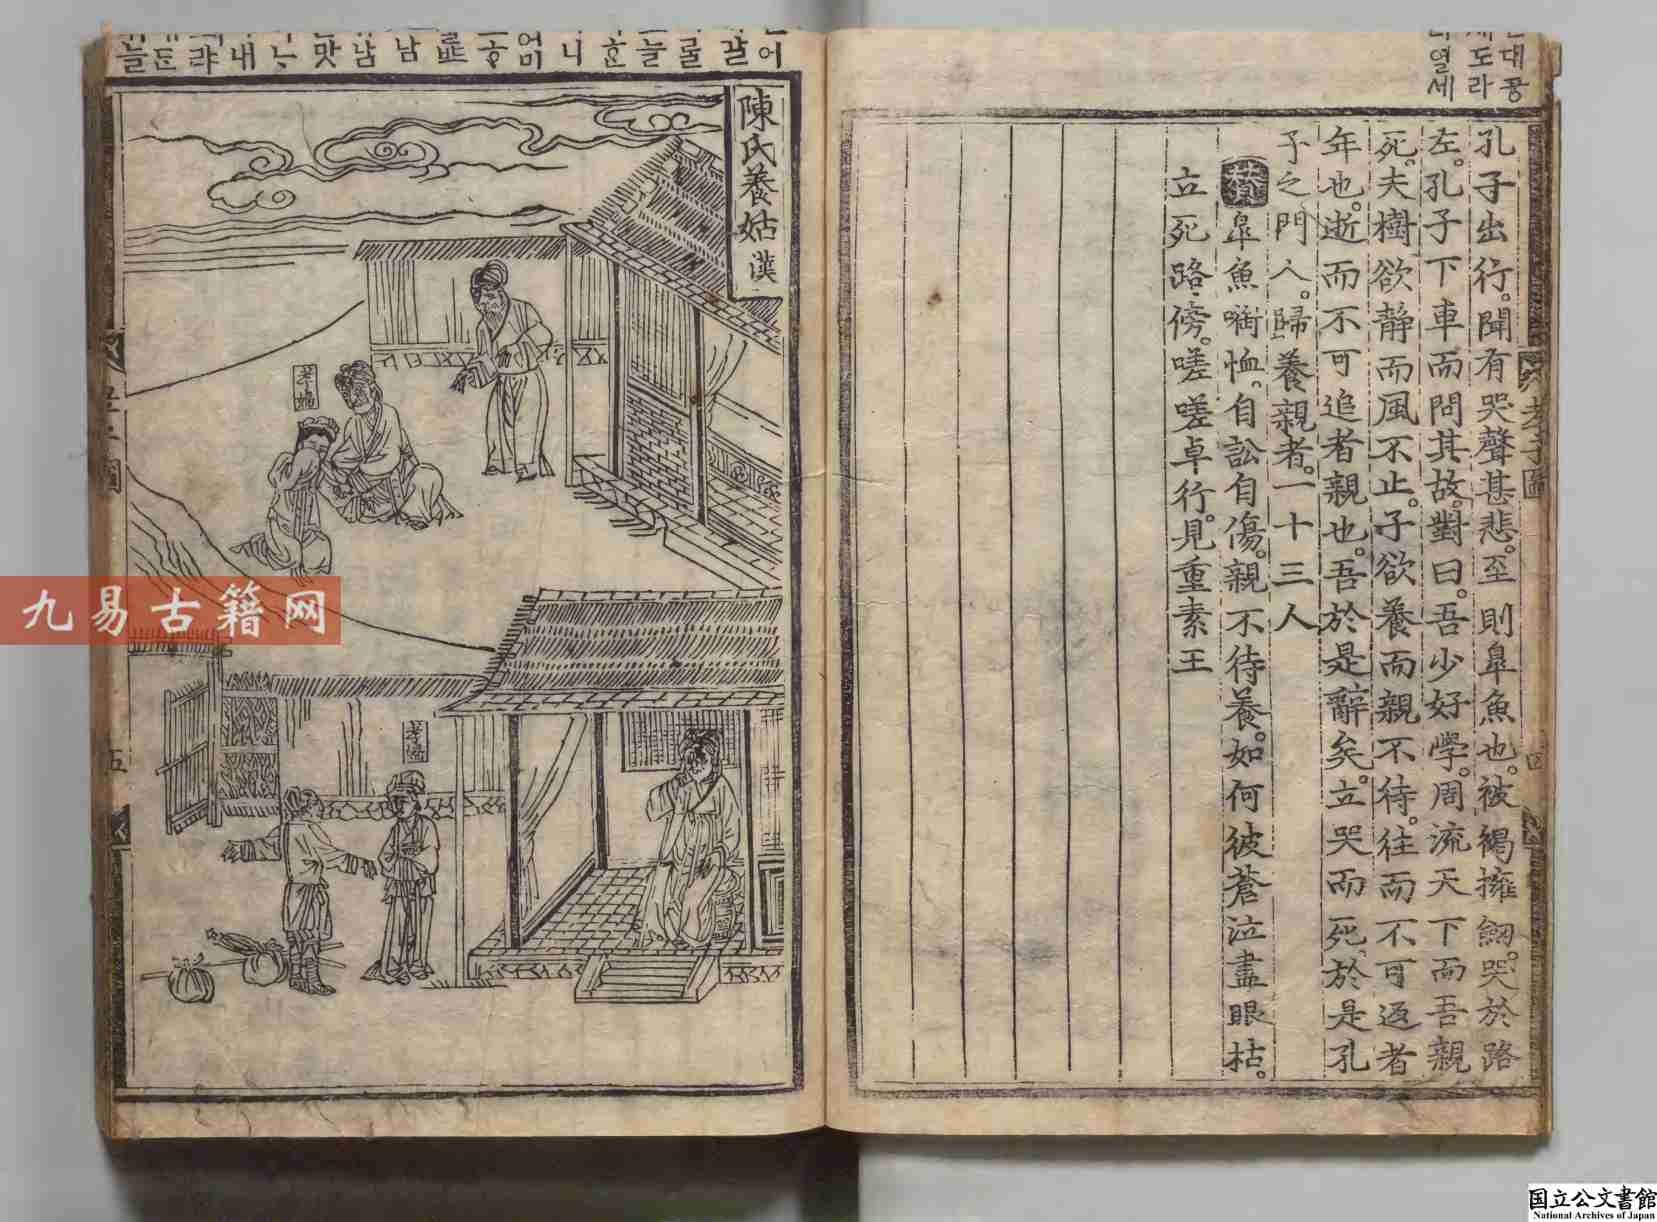 대풍
도라
열세
孔子出行。聞有哭聲甚悲。至則皐魚也。被褐擁劒。哭於路
左。孔子下車而問其故。對曰。吾少好學。周流天下而吾親
死。夫樹欲靜而風不止。子欲養而親不待。往而不可返者
年也。逝而不可追者親也。吾於是辭矣。立哭而死。於是孔
子之門人。歸養親者。一十三人
皐魚啣恤。自訟自傷。親不待養。如何彼蒼泣盡眼枯。
立死路傍。嗟嗟卓行。見重素王
孝子圖
四
陳氏養姑 漢
孝婦
孝婦
五
九易古籍网
国立公文書館
National Archives of Japan